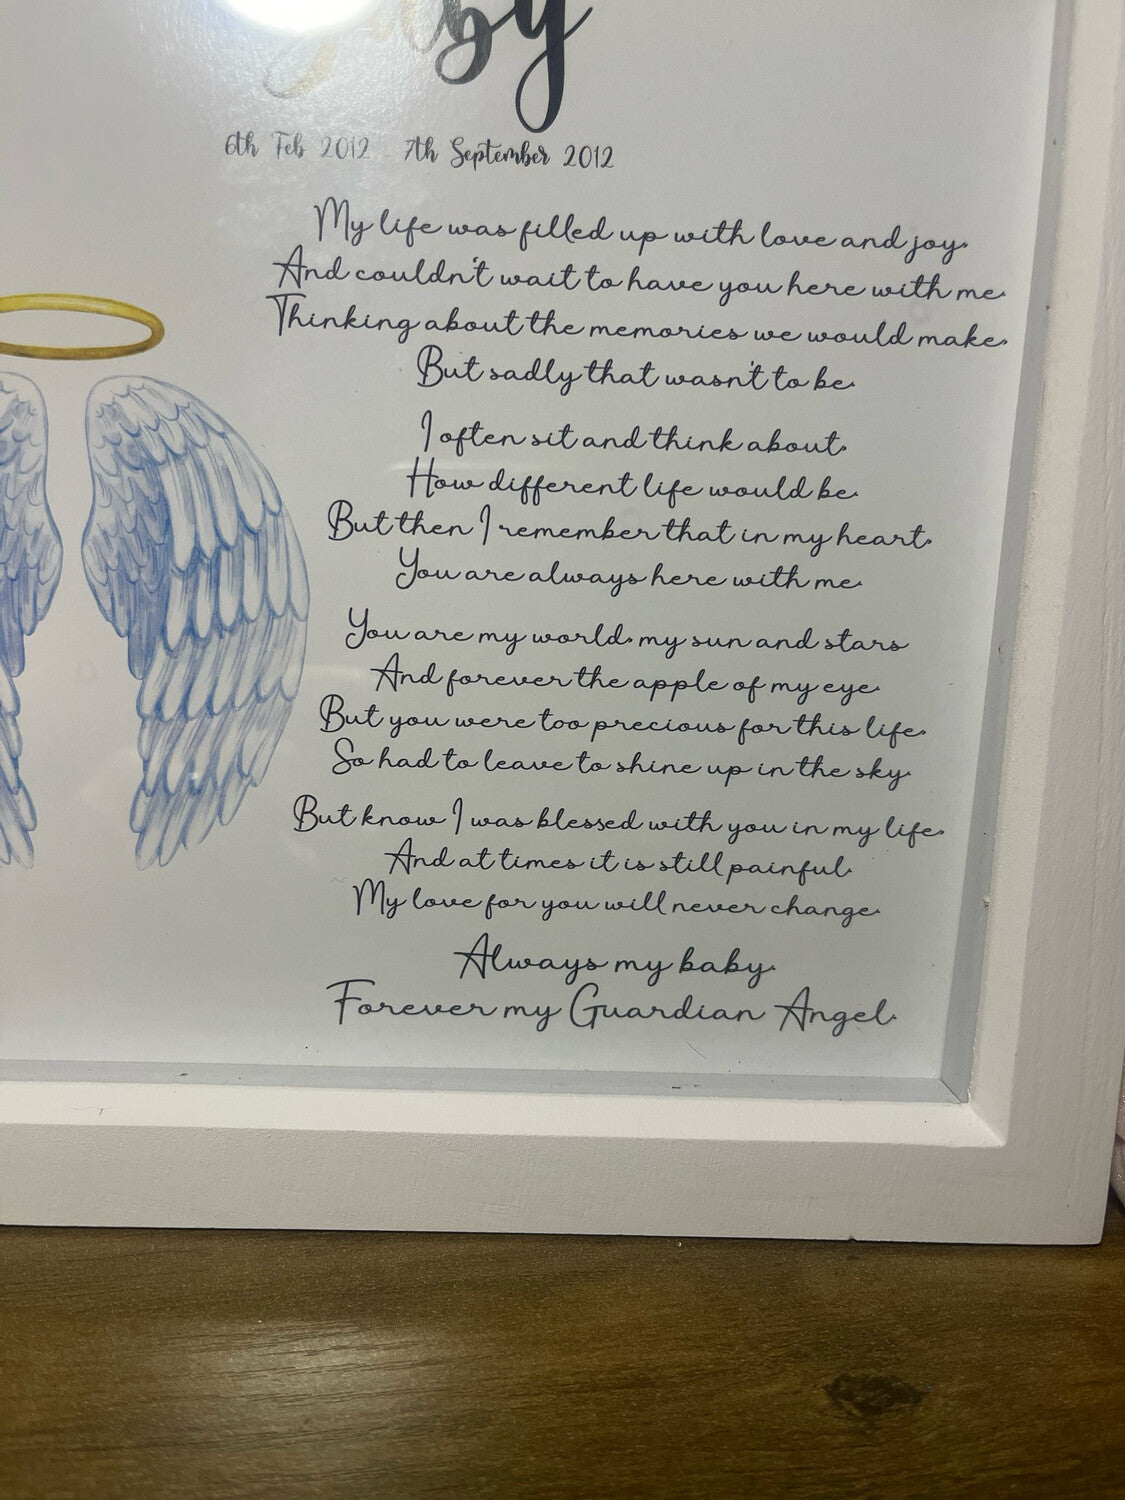 6th Feb 2012 - 7th September 2012
My life was filled up with love and joy.
And couldn't wait to have you here with me.
Thinking about the memories we would make.
But sadly that wasn't to be.
I often sit and think about.
How different life would be.
But then I remember that in my heart.
You are always here with me.
You are my world, my sun and stars
And forever the apple of my eye.
But you were too precious for this life.
So had to leave to shine up in the sky.
But know I was blessed with you in my life.
And at times it is still painful.
My love for you will never change.
Always my baby.
Forever my Guardian Angel.